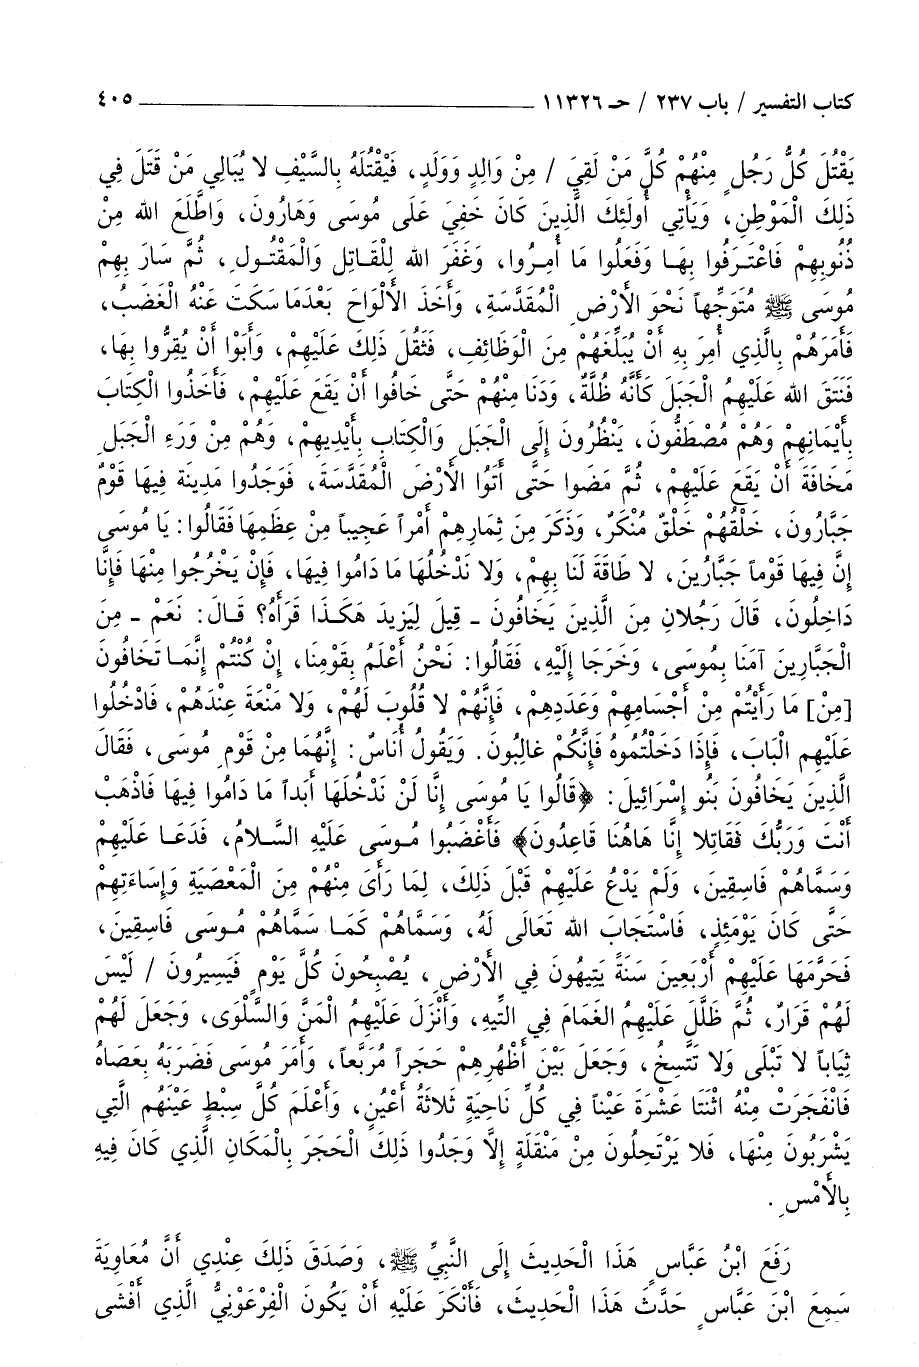 كتاب التفسير / باب ٢٣٧ / حـ ١١٣٢٦ ٤٠٥
يَقْتُلَ كُلُّ رَجُلٍ مِنْهُمْ كُلَّ مَنْ لَقِيَ / مِنْ وَالِدٍ وَوَلَدٍ، فَيَقْتُلَهُ بِالسَّيْفِ لا يُبَالِي مَنْ قَتَلَ فِي
ذَلِكَ الْمَوْطِنِ، وَيَأْتِي أُولَئِكَ الَّذِينَ كَانَ خَفِيَ عَلَى مُوسَى وَهَارُونَ، وَاطَّلَعَ الله مِنْ
ذُنُوبِهِمْ فَاعْتَرَفُوا بِهَا وَفَعَلُوا مَا أُمِرُوا، وَغَفَرَ الله لِلْقَاتِلِ وَالْمَقْتُولِ، ثُمَّ سَارَ بِهِمْ
مُوسَى ﷺ مُتَوَجِّهاً نَحْوَ الأَرْضِ الْمُقَدَّسَةِ، وَأَخَذَ الأَلْوَاحَ بَعْدَمَا سَكَتَ عَنْهُ الْغَضَبُ،
فَأَمَرَهُمْ بِالَّذِي أُمِرَ بِهِ أَنْ يُبَلِّغَهُمْ مِنَ الْوَظَائِفِ، فَثَقُلَ ذَلِكَ عَلَيْهِمْ، وَأَبَوْا أَنْ يُقِرُّوا بِهَا،
فَنَتَقَ الله عَلَيْهِمُ الْجَبَلَ كَأَنَّهُ ظُلَّةٌ، وَدَنَا مِنْهُمْ حَتَّى خَافُوا أَنْ يَقَعَ عَلَيْهِمْ، فَأَخَذُوا الْكِتَابَ
بِأَيْمَانِهِمْ وَهُمْ مُصْطَفُّونَ، يَنْظُرُونَ إِلَى الْجَبَلِ وَالْكِتَابِ بِأَيْدِيهِمْ، وَهُمْ مِنْ وَرَءِ الْجَبَلِ
مَخَافَةَ أَنْ يَقَعَ عَلَيْهِمْ، ثُمَّ مَضَوا حَتَّى أَتَوُا الأَرْضَ الْمُقَدَّسَةَ، فَوَجَدُوا مَدِينَة فِيهَا قَوْمٌ
جَبَّارُونَ، خَلْقُهُمْ خَلْقٌ مُنْكَرٌ، وَذَكَرَ مِنَ ثِمَارِهِمْ أَمْراً عَجِيباً مِنْ عِظَمِهَا فَقَالُوا: يَا مُوسَى
إِنَّ فِيهَا قَوْماً جَبَّارُينَ، لا طَاقَةَ لَنَا بِهِمْ، وَلا نَدْخُلُهَا مَا دَامُوا فِيهَا، فَإِنْ يَخْرُجُوا مِنْهَا فَإِنَّا
دَاخِلُونَ، قَالَ رَجُلانِ مِنَ الَّذِينَ يَخَافُونَ - قِيلَ لِيَزِيدَ هَكَذَا قَرَأَهُ؟ قَالَ: نَعَمْ - مِنَ
الْجَبَّارِينَ آمَنَا بِمُوسَى، وَخَرَجَا إِلَيْهِ، فَقَالُوا: نَحْنُ أَعْلَمُ بِقَوْمِنَا، إِنْ كُنْتُمْ إِنَّمَا تَخَافُونَ
[مِنْ] مَا رَأَيْتُمْ مِنْ أَجْسَامِهِمْ وَعَدَدِهِمْ، فَإِنَّهُمْ لا قُلُوبَ لَهُمْ، وَلا مَنْعَةَ عِنْدَهُمْ، فَادْخُلُوا
عَلَيْهِم الْبَابَ، فَإِذَا دَخَلْتُمُوهُ فَإِنَّكُمْ غالِبُونَ. وَيَقُولُ أُنَاسٌ: إِنَّهُمَا مِنْ قَوْمِ مُوسَى، فَقَالَ
الَّذِينَ يَخَافُونَ بَنُو إِسْرَائِيلَ: ﴿قَالُوا يَا مُوسَى إِنَّا لَنْ نَدْخُلَهَا أَبَداً مَا دَامُوا فِيهَا فَاذْهَبْ
أَنْتَ وَرَبُّكَ فَقَاتِلا إِنَّا هَاهُنَا قَاعِدُونَ﴾ فَأَغْضَبُوا مُوسَى عَلَيْهِ السَّلامُ، فَدَعَا عَلَيْهِمْ
وَسَمَّاهُمْ فَاسِقِينَ، وَلَمْ يَدْعُ عَلَيْهِمْ قَبْلَ ذَلِكَ، لِمَا رَأَى مِنْهُمْ مِنَ الْمَعْصَيَةِ وَإِسَاءَتِهِمْ
حَتَّى كَانَ يَوْمَئِذٍ، فَاسْتَجَابَ الله تَعَالَى لَهُ، وَسَمَّاهُمْ كَمَا سَمَّاهُمْ مُوسَى فَاسِقِينَ،
فَحَرَّمَهَا عَلَيْهِمْ أَرْبَعِينَ سَنَةً يَتِيهُونَ فِي الأَرْضِ، يُصْبِحُونَ كُلَّ يَوْمٍ فَيَسِيرُونَ / لَيْسَ
لَهُمْ قَرَارٌ، ثُمَّ ظَلَّلَ عَلَيْهِمُ الغَمَامَ فِي التِّيهِ، وَأَنْزَلَ عَلَيْهِمُ الْمَنَّ وَالسَّلْوَى، وَجَعَلَ لَهُمْ
ثِيَاباً لا تَبْلَى وَلا تَتَّسِخُ، وَجَعَلَ بَيْنَ أَظْهُرِهِمْ حَجَراً مُرَبَّعاً، وَأَمَرَ مُوسَى فَضَرَبَهُ بِعَصَاهُ
فَانْفَجَرَتْ مِنْهُ اثْنَتَا عَشْرَةَ عَيْناً فِي كُلِّ نَاحِيَةٍ ثَلاثَةُ أَعْيُنٍ، وَأَعْلَمَ كُلَّ سِبْطٍ عَيْنَهُم الَّتِي
يَشْرَبُونَ مِنْهَا، فَلا يَرْتَحِلُونَ مِنْ مَنْقَلَةٍ إِلَّا وَجَدُوا ذَلِكَ الْحَجَرَ بِالْمَكَانِ الَّذِي كَانَ فِيهِ
بِالأَمْسِ.
رَفَعَ ابْنُ عَبَّاسٍ هَذَا الْحَدِيثَ إِلَى النَّبِيِّ ﷺ، وَصَدَقَ ذَلِكَ عِنْدِي أَنَّ مُعَاوِيَةَ
سَمِعَ ابْنَ عَبَّاسٍ حَدَّثَ هَذَا الْحَدِيثَ، فَأَنْكَرَ عَلَيْهِ أَنْ يَكُونَ الْفِرْعَوْنِيُّ الَّذِي أَفْشَى